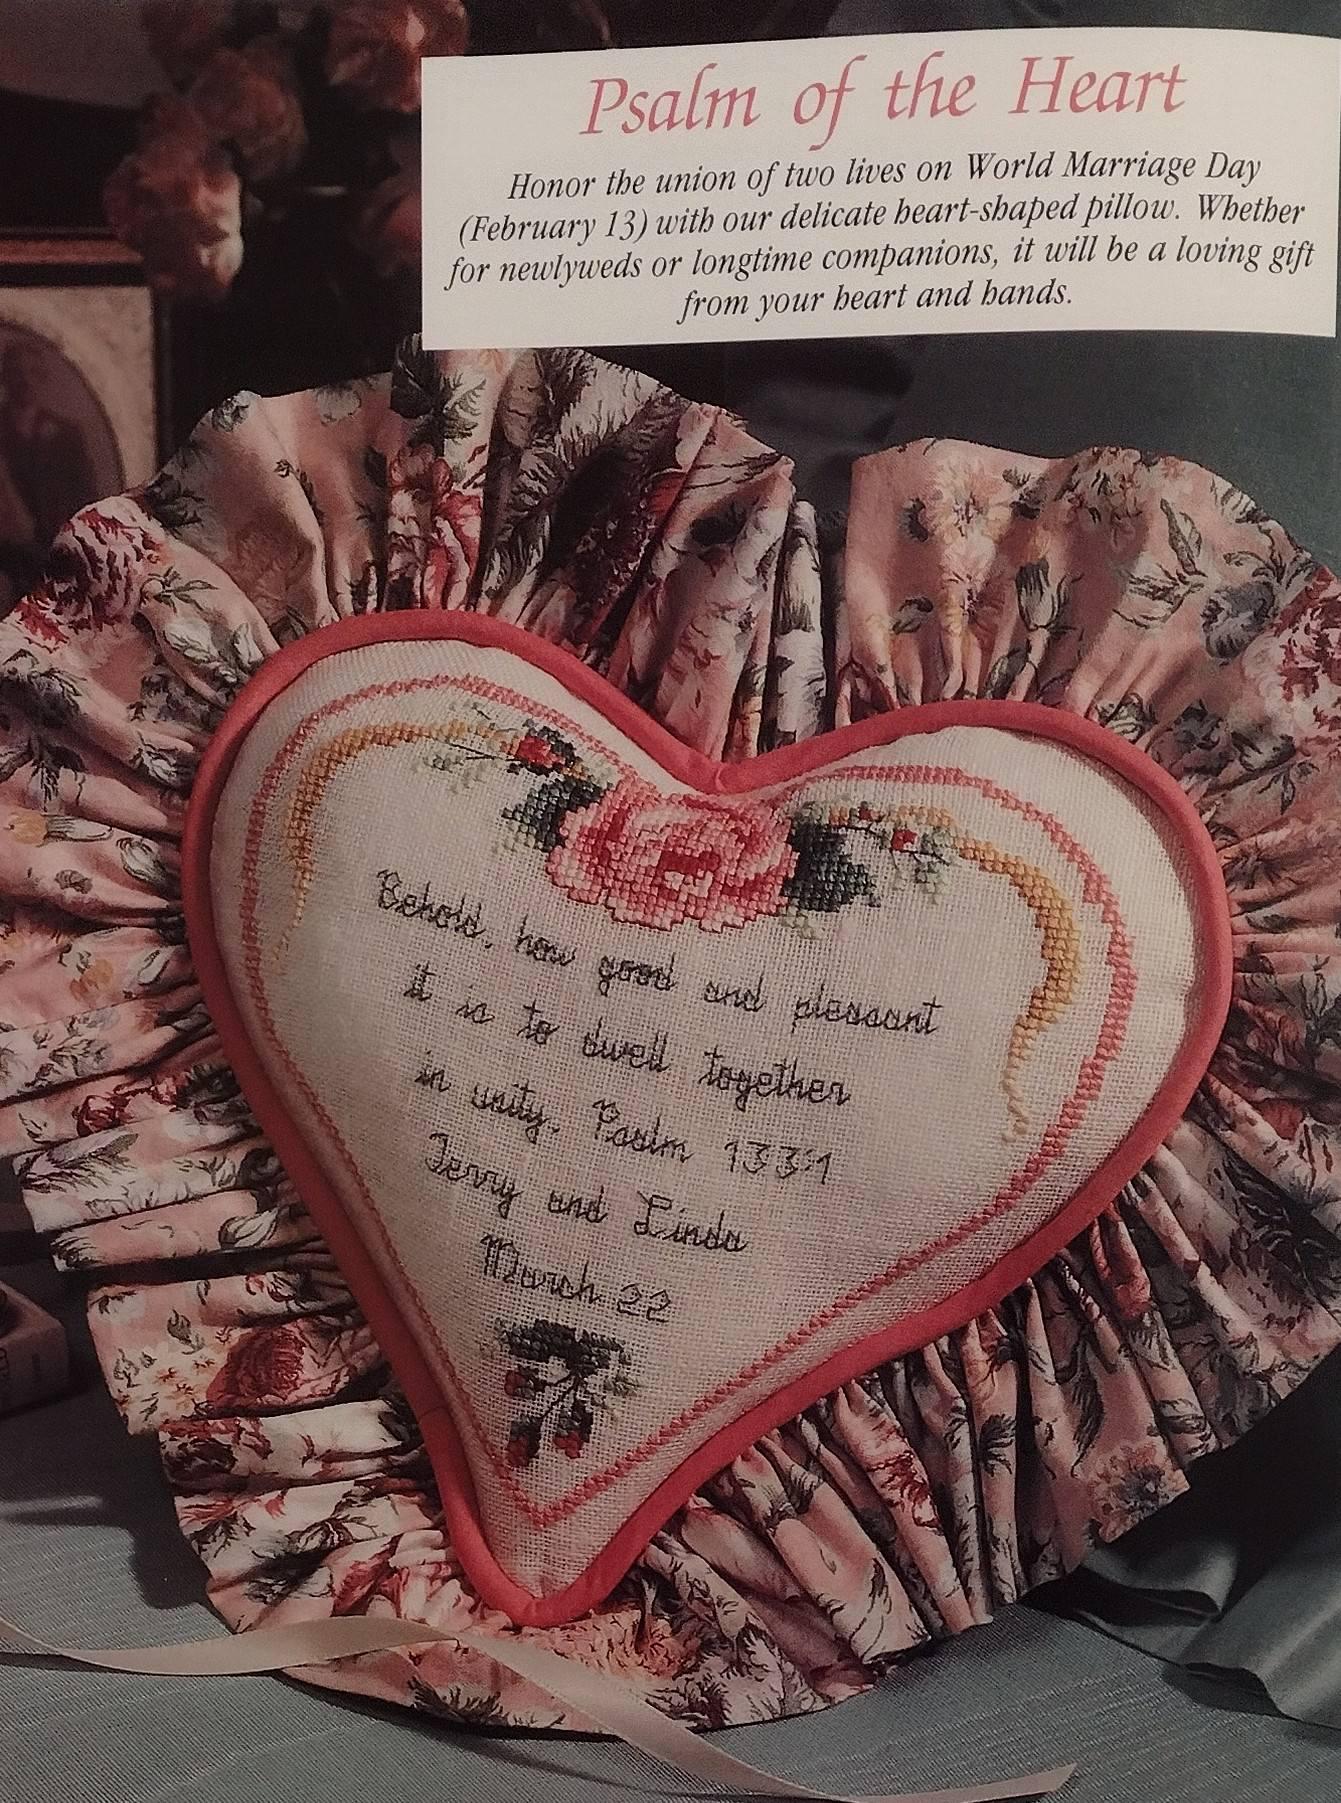 Psalm of the Heart
Honor the union of two lives on World Marriage Day
(February 13) with our delicate heart-shaped pillow. Whether
for newlyweds or longtime companions, it will be a loving gift
from your heart and hands.
Behold, how good and pleasant
it is to dwell together
in unity. Psalm 133:1
Jerry and Linda
March 22